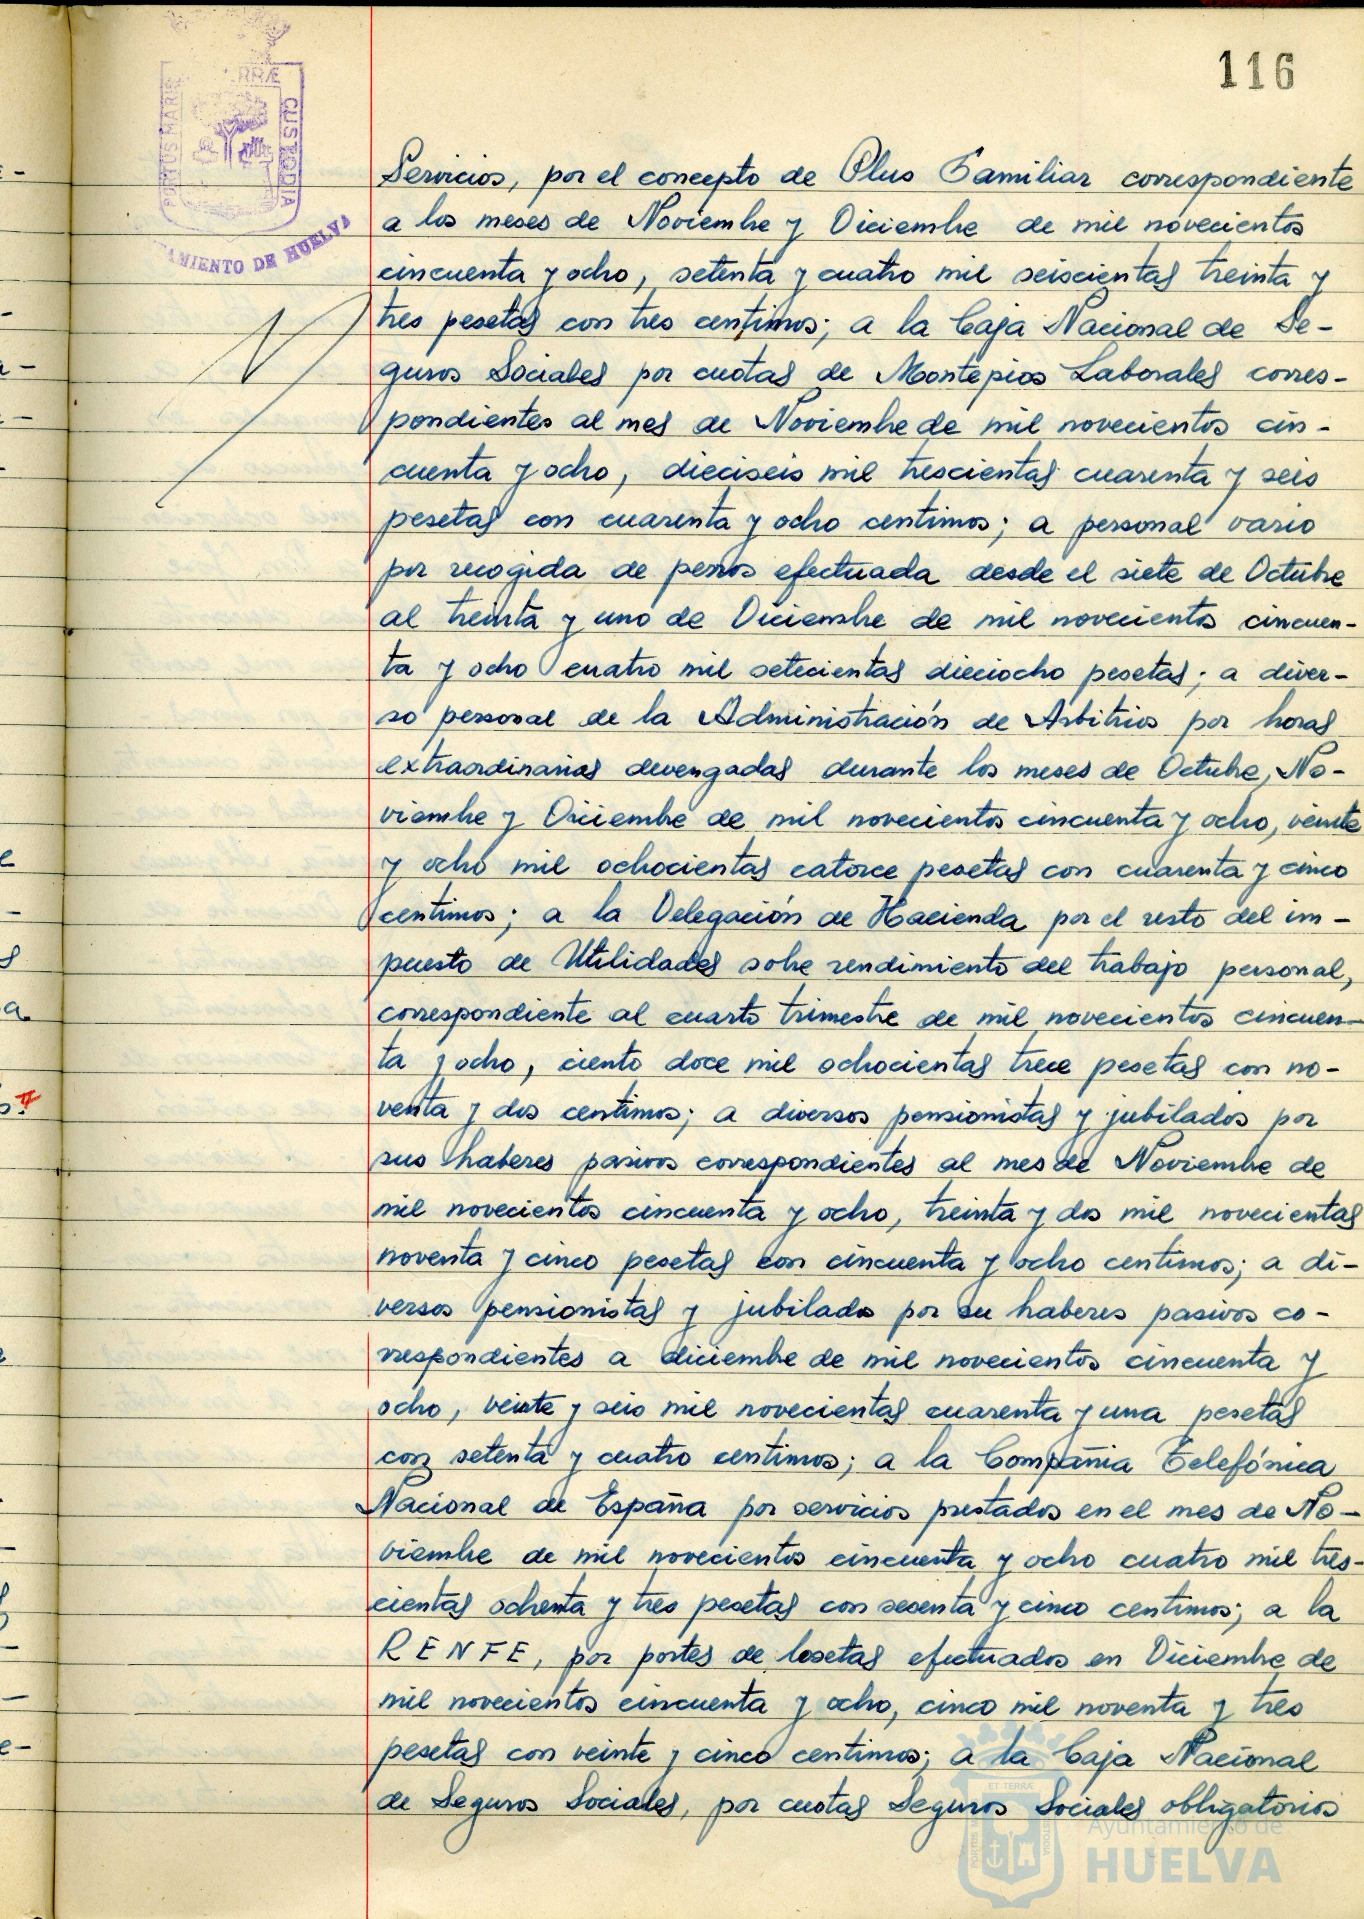 116
PORTUS MARIS
TERRÆ
CUSTODIA
AMIENTO DE HUELVA
Servicios, por el concepto de Plus Familiar correspondiente
a los meses de Noviembre y Diciembre de mil novecientos
cincuenta y ocho, setenta y cuatro mil seiscientas treinta y
tres pesetas con tres centimos; a la Caja Nacional de Se-
guros Sociales por cuotas de Montepios Laborales corres-
pondientes al mes de Noviembre de mil novecientos cin-
cuenta y ocho, dieciseis mil trescientas cuarenta y seis
pesetas con cuarenta y ocho centimos; a personal vario
por recogida de perros efectuada desde el siete de Octubre
al treinta y uno de Diciembre de mil novecientos cincuen-
ta y ocho cuatro mil setecientas dieciocho pesetas; a diver-
so personal de la Administración de Arbitrios por horas
extraordinarias devengadas durante los meses de Octubre, No-
viembre y Diciembre de mil novecientos cincuenta y ocho, veinte
y ocho mil ochocientas catorce pesetas con cuarenta y cinco
centimos; a la Delegación de Hacienda por el resto del im-
puesto de Utilidades sobre rendimiento del trabajo personal,
correspondiente al cuarto trimestre de mil novecientos cincuen-
ta y ocho, ciento doce mil ochocientas trece pesetas con no-
venta y dos centimos; a diversos pensionistas y jubilados por
sus haberes pasivos correspondientes al mes de Noviembre de
mil novecientos cincuenta y ocho, treinta y dos mil novecientas
noventa y cinco pesetas con cincuenta y ocho centimos; a di-
versos pensionistas y jubilados por su haberes pasivos co-
rrespondientes a diciembre de mil novecientos cincuenta y
ocho, veinte y seis mil novecientas cuarenta y una pesetas
con setenta y cuatro centimos; a la Compañia Telefónica
Nacional de España por servicios prestados en el mes de No-
viembre de mil novecientos cincuenta y ocho cuatro mil tres-
cientas ochenta y tres pesetas con sesenta y cinco centimos; a la
RENFE, por portes de losetas efectuados en Diciembre de
mil novecientos cincuenta y ocho, cinco mil noventa y tres
pesetas con veinte y cinco centimos; a la Caja Nacional
de Seguros Sociales, por cuotas Seguros Sociales obligatorios
Ayuntamiento de
HUELVA